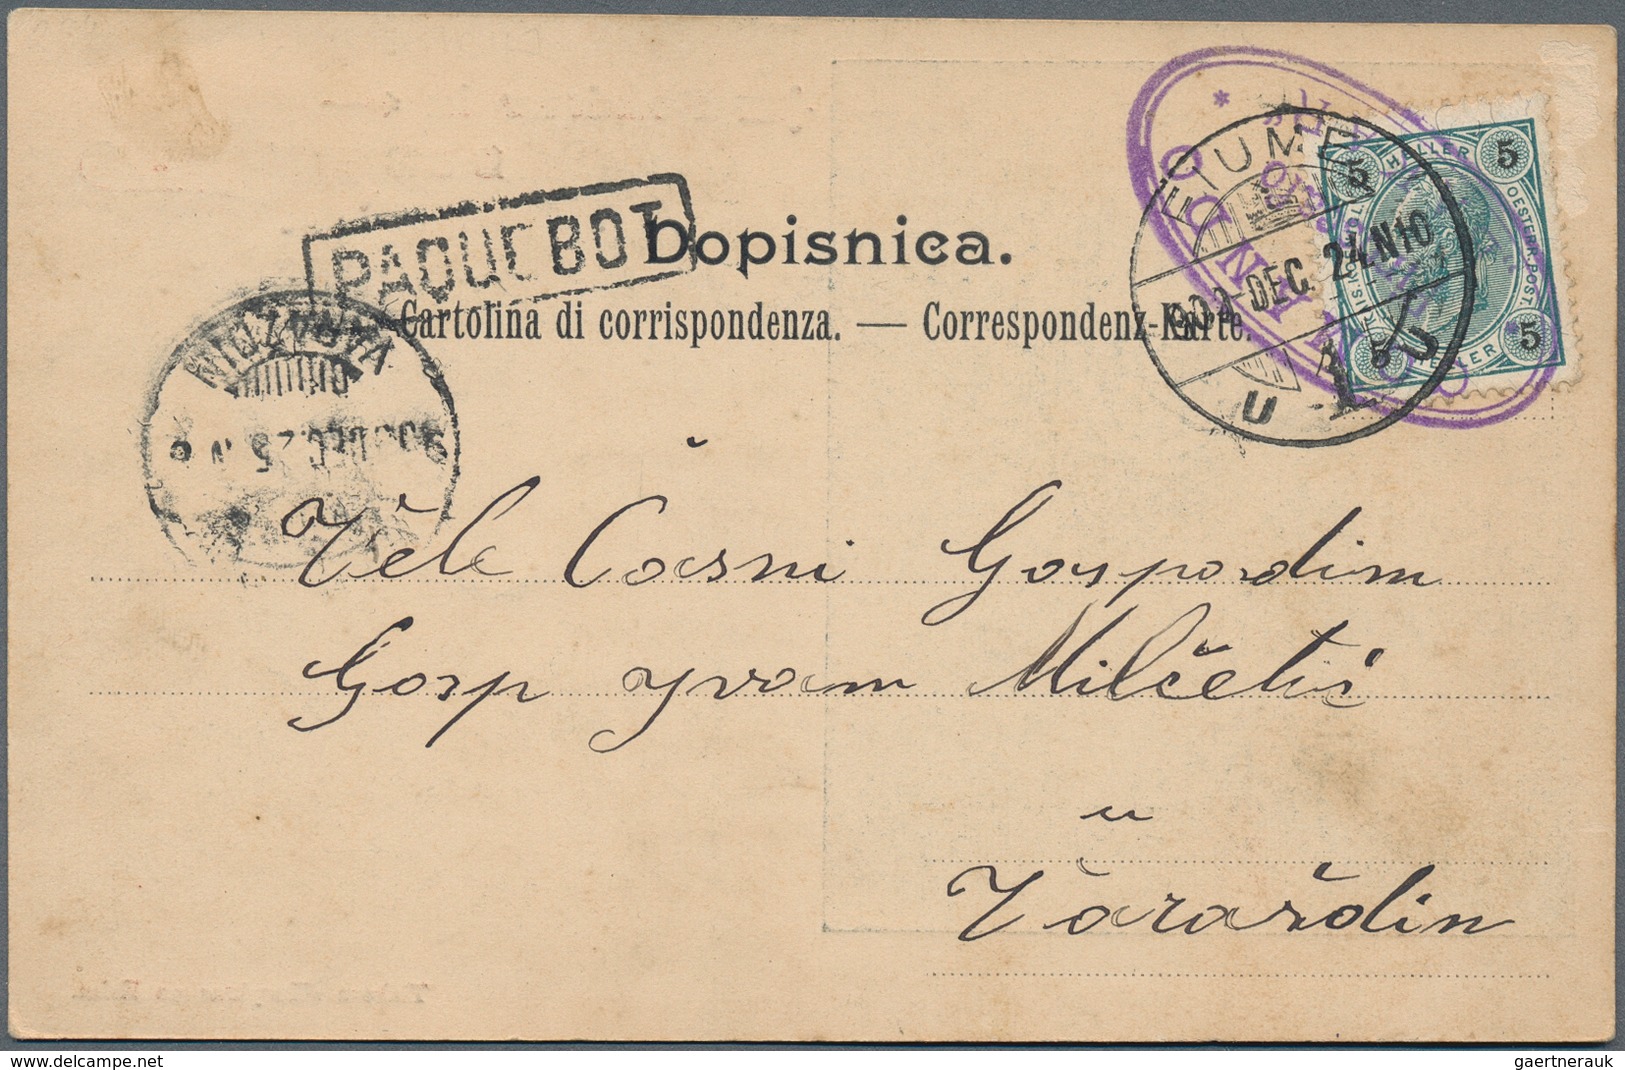 PAQUEBOT
Dopisnica.
Cartolina di corrispondenza. — Correspondenz-Karte.
FIUME
DEC. 24. N10
5 HELLER 5
OESTERR. POST.
5 HELLER 5
903 DEC. 25
Vele Časni Gospodim
Gosp yvam Milčetić
u
Varaždin
gaertnerauk
www.delcampe.net